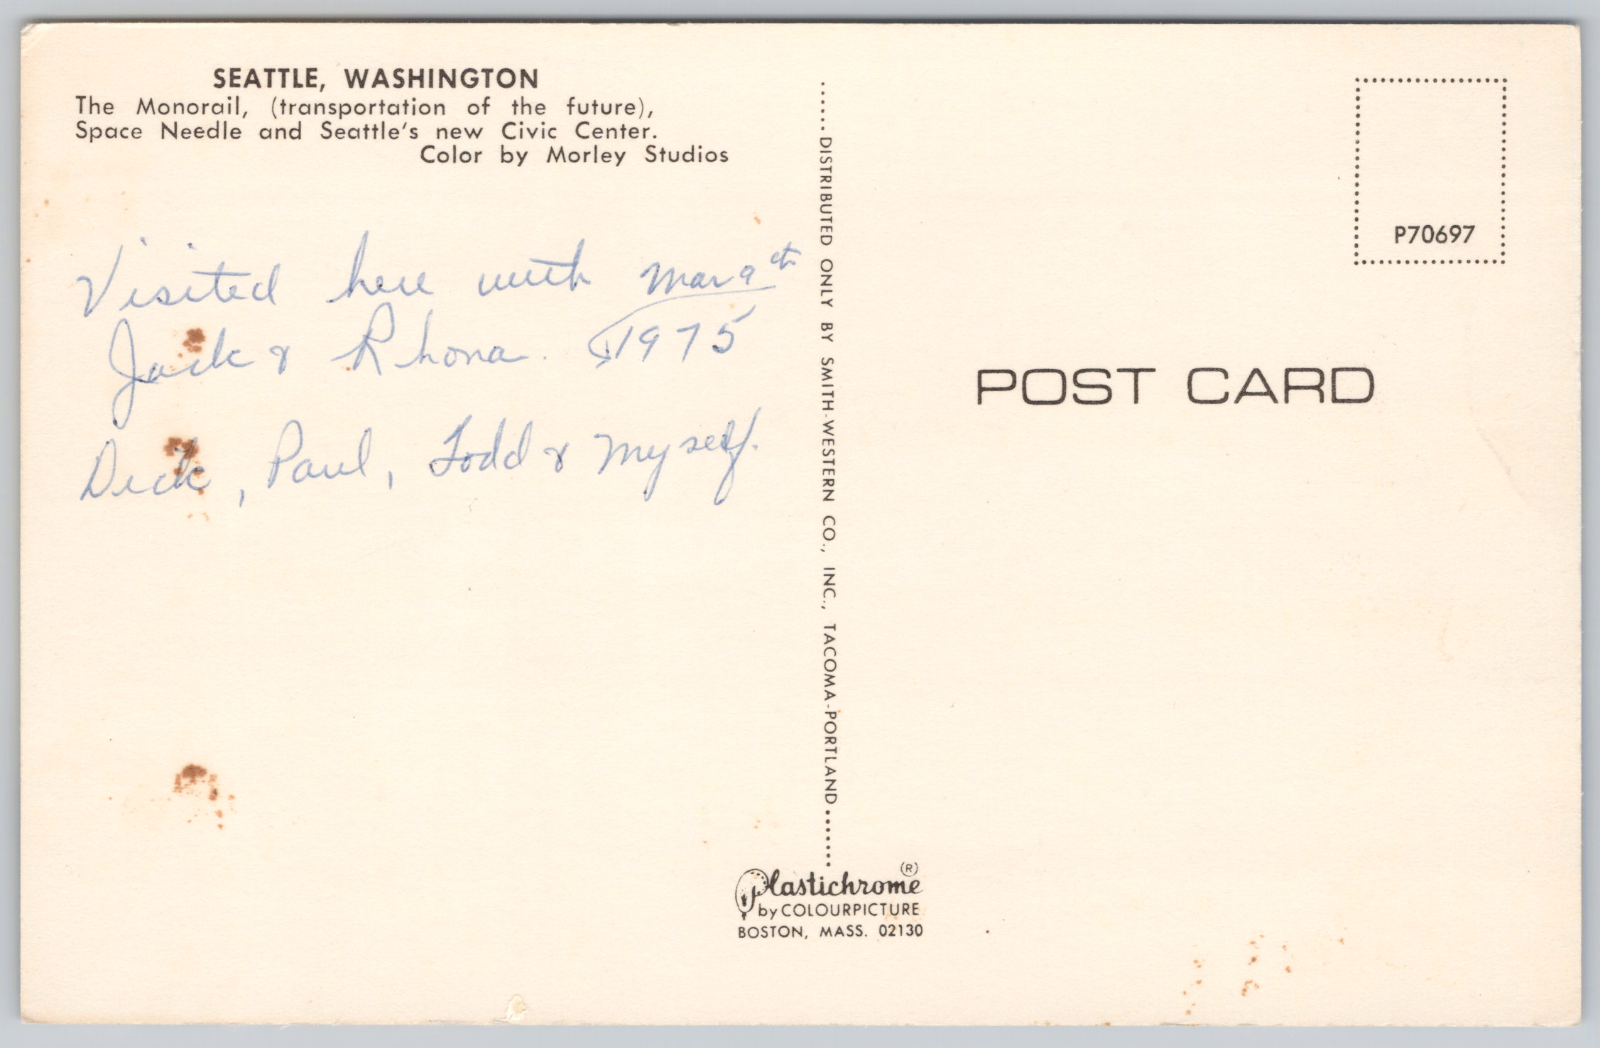 SEATTLE, WASHINGTON
The Monorail, (transportation of the future),
Space Needle and Seattle's new Civic Center.
Color by Morley Studios
Visited here with Mar 9th
Jack & Rhona. 1975
Dick, Paul, Todd & myself.
DISTRIBUTED ONLY BY SMITH-WESTERN CO., INC., TACOMA-PORTLAND
P70697
POST CARD
Plastichrome ®
by COLOURPICTURE
BOSTON, MASS. 02130